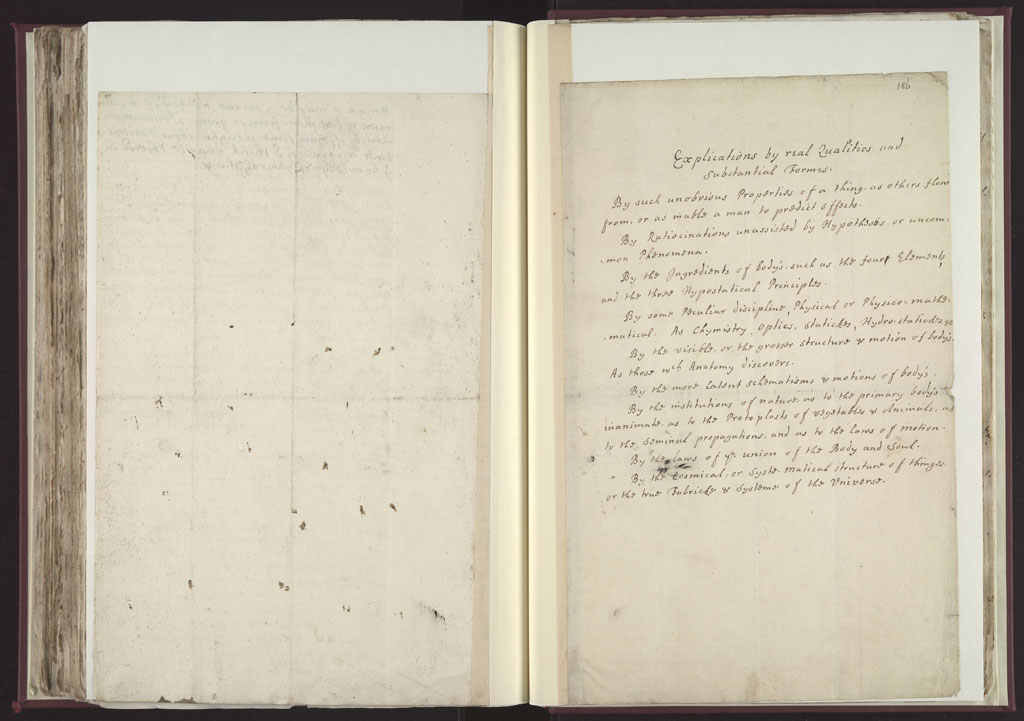 186
Explications by real Qualities and
Substantial Formes.
By such unobvious Properties of a thing as others flow
from, or as inable a man to predict effects.
By Ratiocinations unassisted by Hypotheses, or uncom-
-mon Phenomena.
By the Ingredients of body's, such as the four Elements,
and the three Hypostatical Principles.
By some Peculiar discipline, Physical or Physico-mathe-
-matical. As Chymistry, Optics, Staticks, Hydro-staticks &c
By the visible, or the grosser structure & motion of body's.
As those wch Anatomy discovers.
By the more Latent schematisms & motions of body's.
By the institutions of nature, as to the primary body's
inanimate, as to the Protoplasts of vegetables & Animals, as
to the Seminal propagations, and as to the laws of motion.
By the Laws of ye union of the Body and Soul.
By the Cosmical, or Syste-matical structure of things,
or the true Fabricke & Systeme of the Universe.